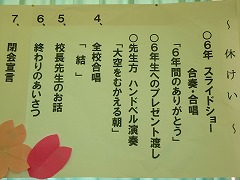 ～休けい～
○６年　スライドショー
合奏・合唱
「６年間のありがとう」
○６年生へのプレゼント渡し
○先生方　ハンドベル演奏
「大空をむかえる朝」
４、全校合唱
「結」
５、校長先生のお話
６、終わりのあいさつ
７、閉会宣言